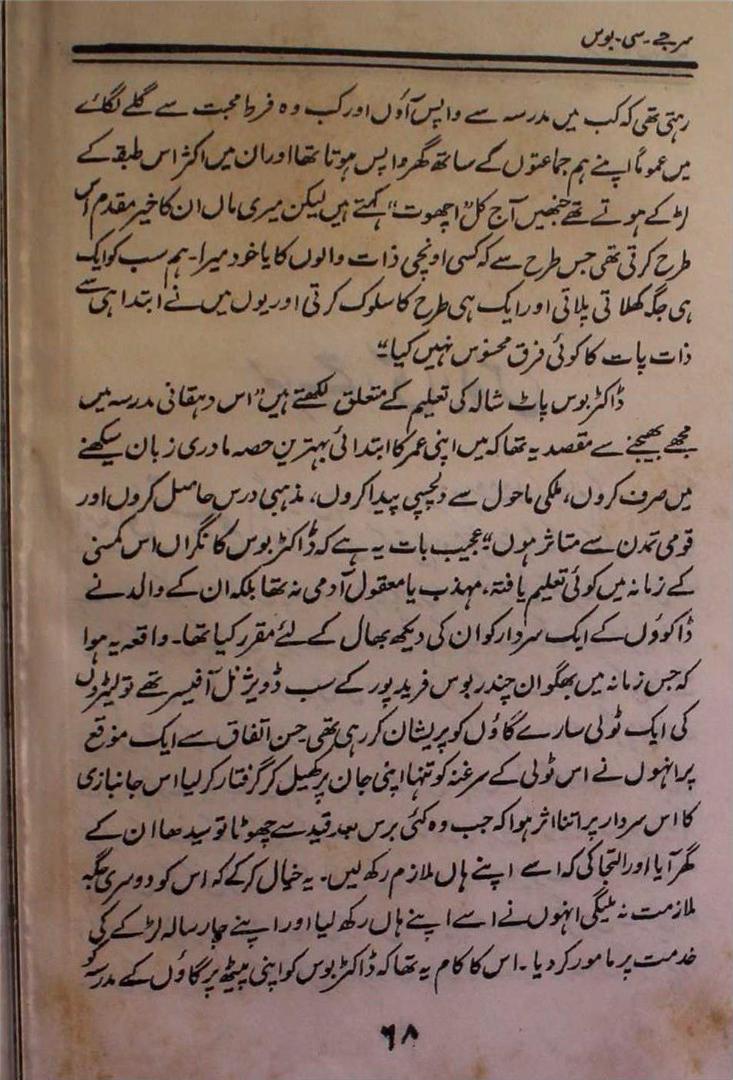 سر جے۔ سی۔ بوس
رہتی تھی کہ کب میں مدرسہ سے واپس آؤں اور کب وہ فرط محبت سے گلے لگائے
میں عموماً اپنے ہم جماعتوں کے ساتھ گھر واپس ہوتا تھا اور ان میں اکثر اس طبقہ کے
لڑکے ہوتے تھے جنھیں آج کل "اچھوت" کہتے ہیں لیکن میری ماں ان کا خیر مقدم اس
طرح کرتی تھی جس طرح سے کہ کسی اونچی ذات والوں کا یا خود میرا۔ ہم سب کو ایک
ہی جگہ کھلاتی پلاتی اور ایک ہی طرح کا سلوک کرتی اور یوں میں نے ابتدا ہی سے
ذات پات کا کوئی فرق محسوس نہیں کیا"
ڈاکٹر بوس پاٹ شالہ کی تعلیم کے متعلق لکھتے ہیں "اس دہقانی مدرسہ میں
مجھے بھیجنے سے مقصد یہ تھا کہ میں اپنی عمر کا ابتدائی بہترین حصہ مادری زبان سیکھنے
میں صرف کروں، ملکی ماحول سے دلچسپی پیدا کروں، مذہبی درس حاصل کروں اور
قومی تمدن سے متاثر ہوں" عجیب بات یہ ہے کہ ڈاکٹر بوس کا نگراں اس کمسنی
کے زمانہ میں کوئی تعلیم یافتہ، مہذب یا معقول آدمی نہ تھا بلکہ ان کے والد نے
ڈاکووں کے ایک سردار کو ان کی دیکھ بھال کے لئے مقرر کیا تھا۔ واقعہ یہ ہوا
کہ جس زمانہ میں بھگوان چندر بوس فرید پور کے سب ڈویژنل آفیسر تھے تو لیٹروں
کی ایک ٹولی سارے گاؤں کو پریشان کر رہی تھی۔ حسن اتفاق سے ایک موقع
پر انہوں نے اس ٹولی کے سرغنہ کو تنہا اپنی جان پر کھیل کر گرفتار کر لیا اس جانبازی
کا اس سردار پر اتنا اثر ہوا کہ جب وہ کئی برس بعد قید سے چھوٹا تو سیدھا ان کے
گھر آیا اور التجا کی کہ اسے اپنے ہاں ملازم رکھ لیں۔ یہ خیال کر کے کہ اس کو دوسری جگہ
ملازمت نہ ملیگی انہوں نے اسے اپنے ہاں رکھ لیا اور اپنے چار سالہ لڑکے کی
خدمت پر مامور کر دیا۔ اس کا کام یہ تھا کہ ڈاکٹر بوس کو اپنی پیٹھ پر گاؤں کے مدرسہ کو
۶۸